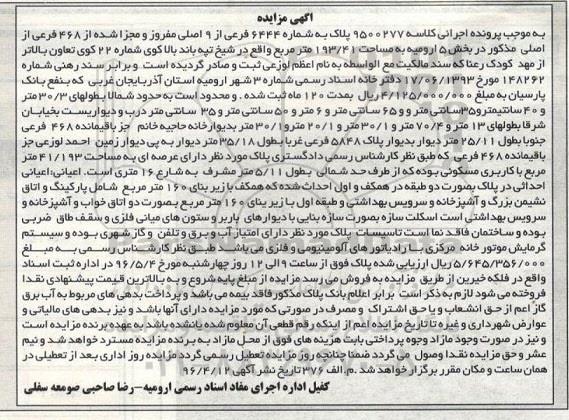 آگهی مزایده
به موجب پرونده اجرائی کلاسه ۹۵۰۰۲۷۷ پلاک به شماره ۶۴۴۴ فرعی از ۹ اصلی مفروز و مجزا شده از ۴۶۸ فرعی از
اصلی مذکور در بخش ۵ ارومیه به مساحت ۱۹۳/۴۱ متر مربع واقع در شیخ تپه باند بالا کوی شماره ۲۲ کوی تعاون بالاتر
از مهد کودک رعنا که سند مالکیت مع الواسطه به نام اعظم لوزعی ثبت و صادر گردیده است و برابر سند رهنی شماره
۱۴۸۲۶۲ مورخ ۱۷/۰۶/۱۳۹۳ دفتر خانه اسناد رسمی شماره ۳ شهر ارومیه استان آذربایجان غربی که بنفع بانک
پارسیان به مبلغ ۴/۱۲۵/۰۰۰/۰۰۰ ریال بمدت ۱۲۰ ماه ثبت شده . و محدود است به حدود شمالا بطولهای ۳/۳۰ متر
و ۴۰ سانتیمتر و ۳۵ سانتی متر و ۶۵ سانتی متر و ۶ متر و ۵۰ سانتی متر و ۳۵ سانتی متر درب و دیواریست بخیابان
شرقا بطولهای ۱۳ متر و ۷۰/۴ متر و ۳۰/۱ متر و ۲۰/۱ متر و ۳۰/۱ متر بدیوار خانه حاجیه خانم جز باقیمانده ۴۶۸ فرعی
جنوبا بطول ۲۵/۱۱ متر دیوار بدیوار پلاک ۵۸۴۸ فرعی غربا بطول ۳۵/۱۸ متر دیوار به پی دیوار زمین احمد لوزعی جز
باقیمانده ۴۶۸ فرعی که طبق نظر کارشناس رسمی دادگستری پلاک مورد نظر دارای عرصه ای به مساحت ۴۱/۱۹۳ متر
مربع با کاربری مسکونی بوده که از طرف حد شمالی بطول ۵/۱۱ متر مشرف به شارع ۱۶ متری است. اعیانی: اعیانی
احداثی در پلاک بصورت دو طبقه در همکف و اول احداث شده که همکف با زیر بنای ۱۶۰ متر مربع شامل پارکینگ و اتاق
نشیمن بزرگ و آشپزخانه و سرویس بهداشتی و طبقه اول با زیر بنای ۱۶۰ متر مربع بصورت دو اتاق خواب و آشپزخانه و
سرویس بهداشتی است اسکلت سازه بصورت سازه بنایی با دیوارهای باربر و ستون های میانی فلزی و سقف طاق ضربی
بوده و ساختمان فاقد نما است تاسیسات پلاک مورد نظر دارای امتیاز آب و برق و تلفن و گاز شهری بوده و سیستم
گرمایش موتور خانه مرکزی با رادیاتور های آلومینیومی و فلزی می باشد طبق نظر کارشناس رسمی به مبلغ
۵/۶۴۵/۳۵۶/۰۰۰ ریال ارزیابی شده پلاک فوق از ساعت ۹ الی ۱۲ روز چهارشنبه مورخ ۹۶/۵/۴ در اداره ثبت اسناد
واقع در فلکه خیرین از طریق مزایده به فروش می رسد مزایده از مبلغ پایه شروع و به بالاترین قیمت پیشنهادی نقدا
فروخته می شود لازم به ذکر است برابر اعلام بانک پلاک مذکور فاقد بیمه می باشد و پرداخت بدهی های مربوط به آب برق
گاز اعم از حق انشعاب و یا حق اشتراک و مصرف در صورتی که مورد مزایده دارای آنها باشد و نیز بدهی های مالیاتی و
عوارض شهرداری و غیره تا تاریخ مزایده اعم از اینکه رقم قطعی آن معلوم شده یا نشده باشد به عهده برنده مزایده است
و نیز در صورت وجود مازاد وجوه پرداختی بابت هزینه های فوق از محل مازاد به برنده مزایده مسترد خواهد شد و نیم
عشر و حق مزایده نقدا وصول می گردد ضمنا چنانچه روز مزایده تعطیل رسمی گردد مزایده روز اداری بعد از تعطیلی در
همان ساعت و مکان مقرر برگزار خواهد شد .م.الف ۳۷۶ تاریخ نشر آگهی ۹۶/۴/۱۲
کفیل اداره اجرای مفاد اسناد رسمی ارومیه-رضا صاحبی صومعه سفلی